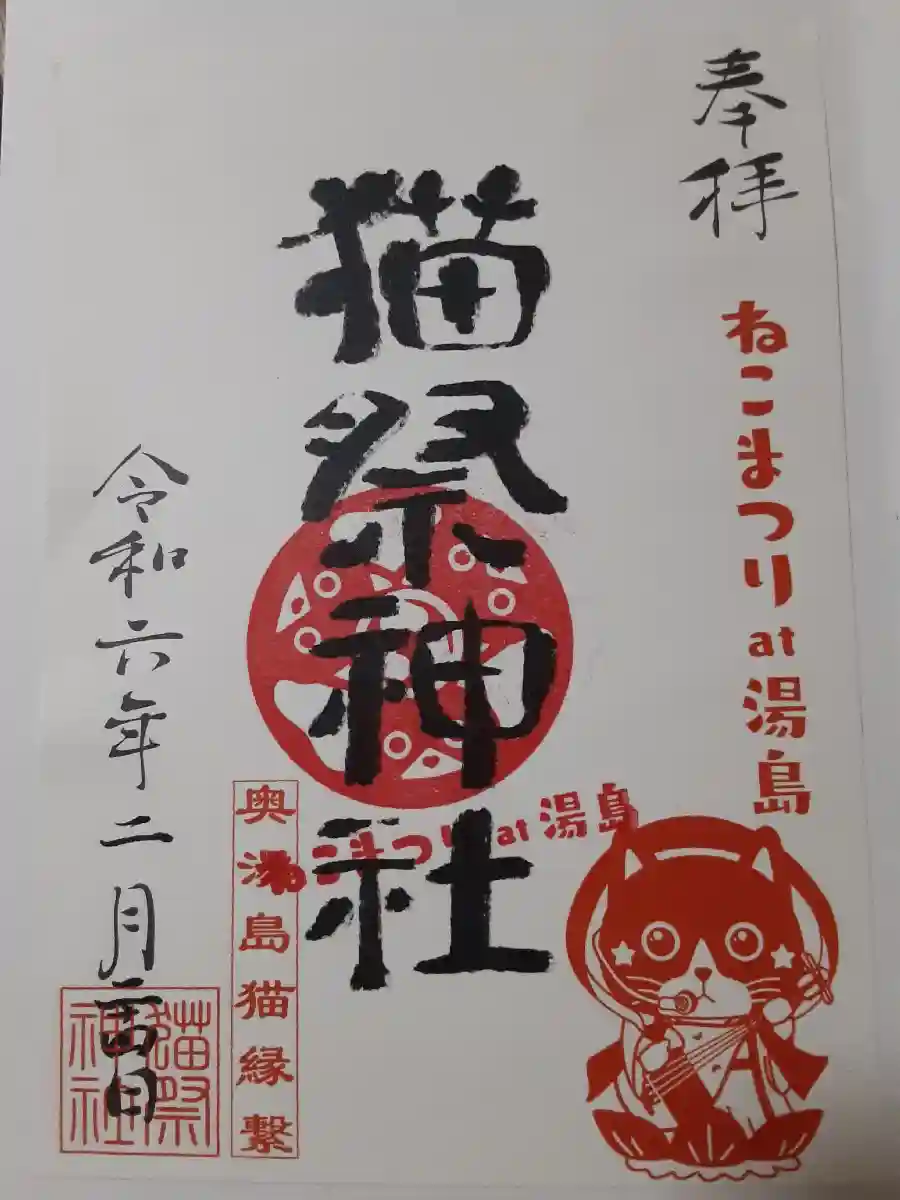 奉拝
ねこまつり at 湯島
猫祭神社
ねこまつり at 湯島
奥湯島猫縁繋
令和六年二月日
猫祭
神社